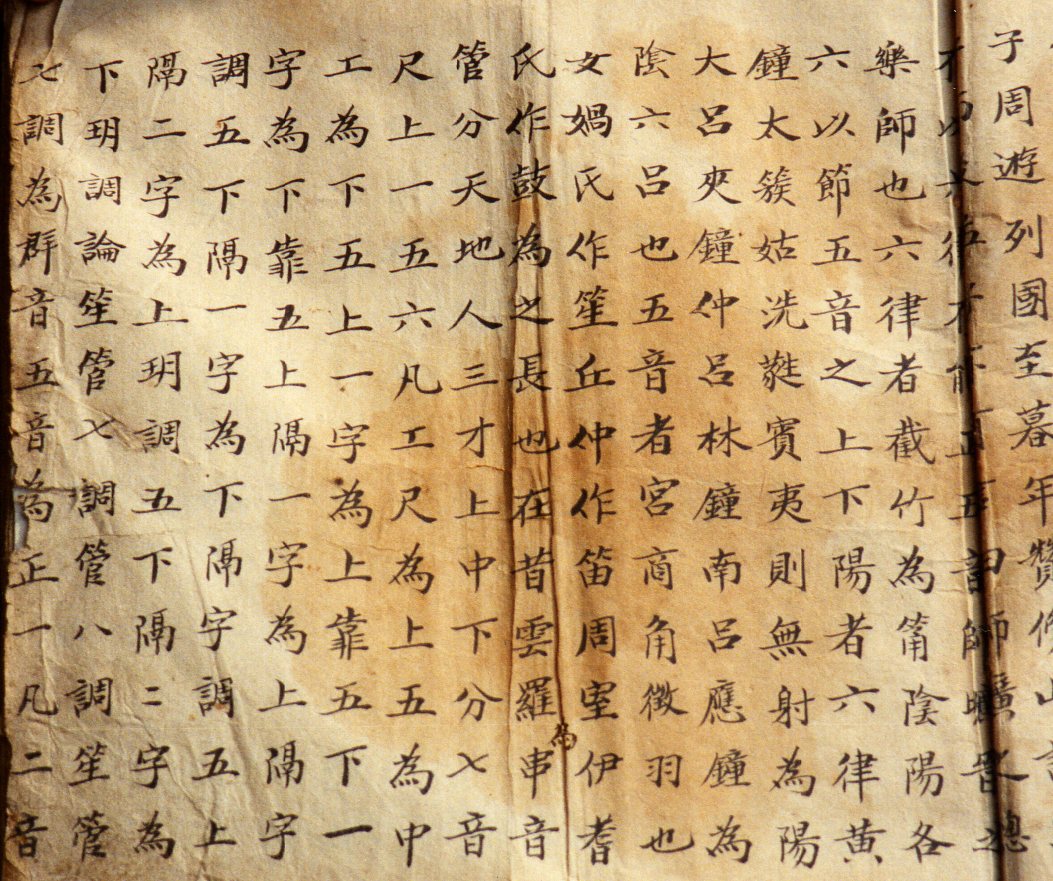 子周遊列國至暮年贊修
不以六律不能正五音師曠晉之
樂師也六律者截竹為筩陰陽各
六以節五音之上下陽者六律黄
鐘太簇姑洗蕤賓夷則無射為陽
大呂夾鐘仲呂林鐘南呂應鐘為
陰六呂也五音者宮商角徵羽也
女媧氏作笙丘仲作笛周室伊耆
為
氏作鼓為之長也在昔雲羅串音
管分天地人三才上中下分七音
尺上一五六凡工尺為上五為中
工為下五上一字為上靠五下一
字為下靠五上隔一字為上隔字
調五下隔一字為下隔字調五上
隔二字為上玥調五下隔二字為
下玥調論笙管七調管八調笙管
七調為群音五音為正一凡二音